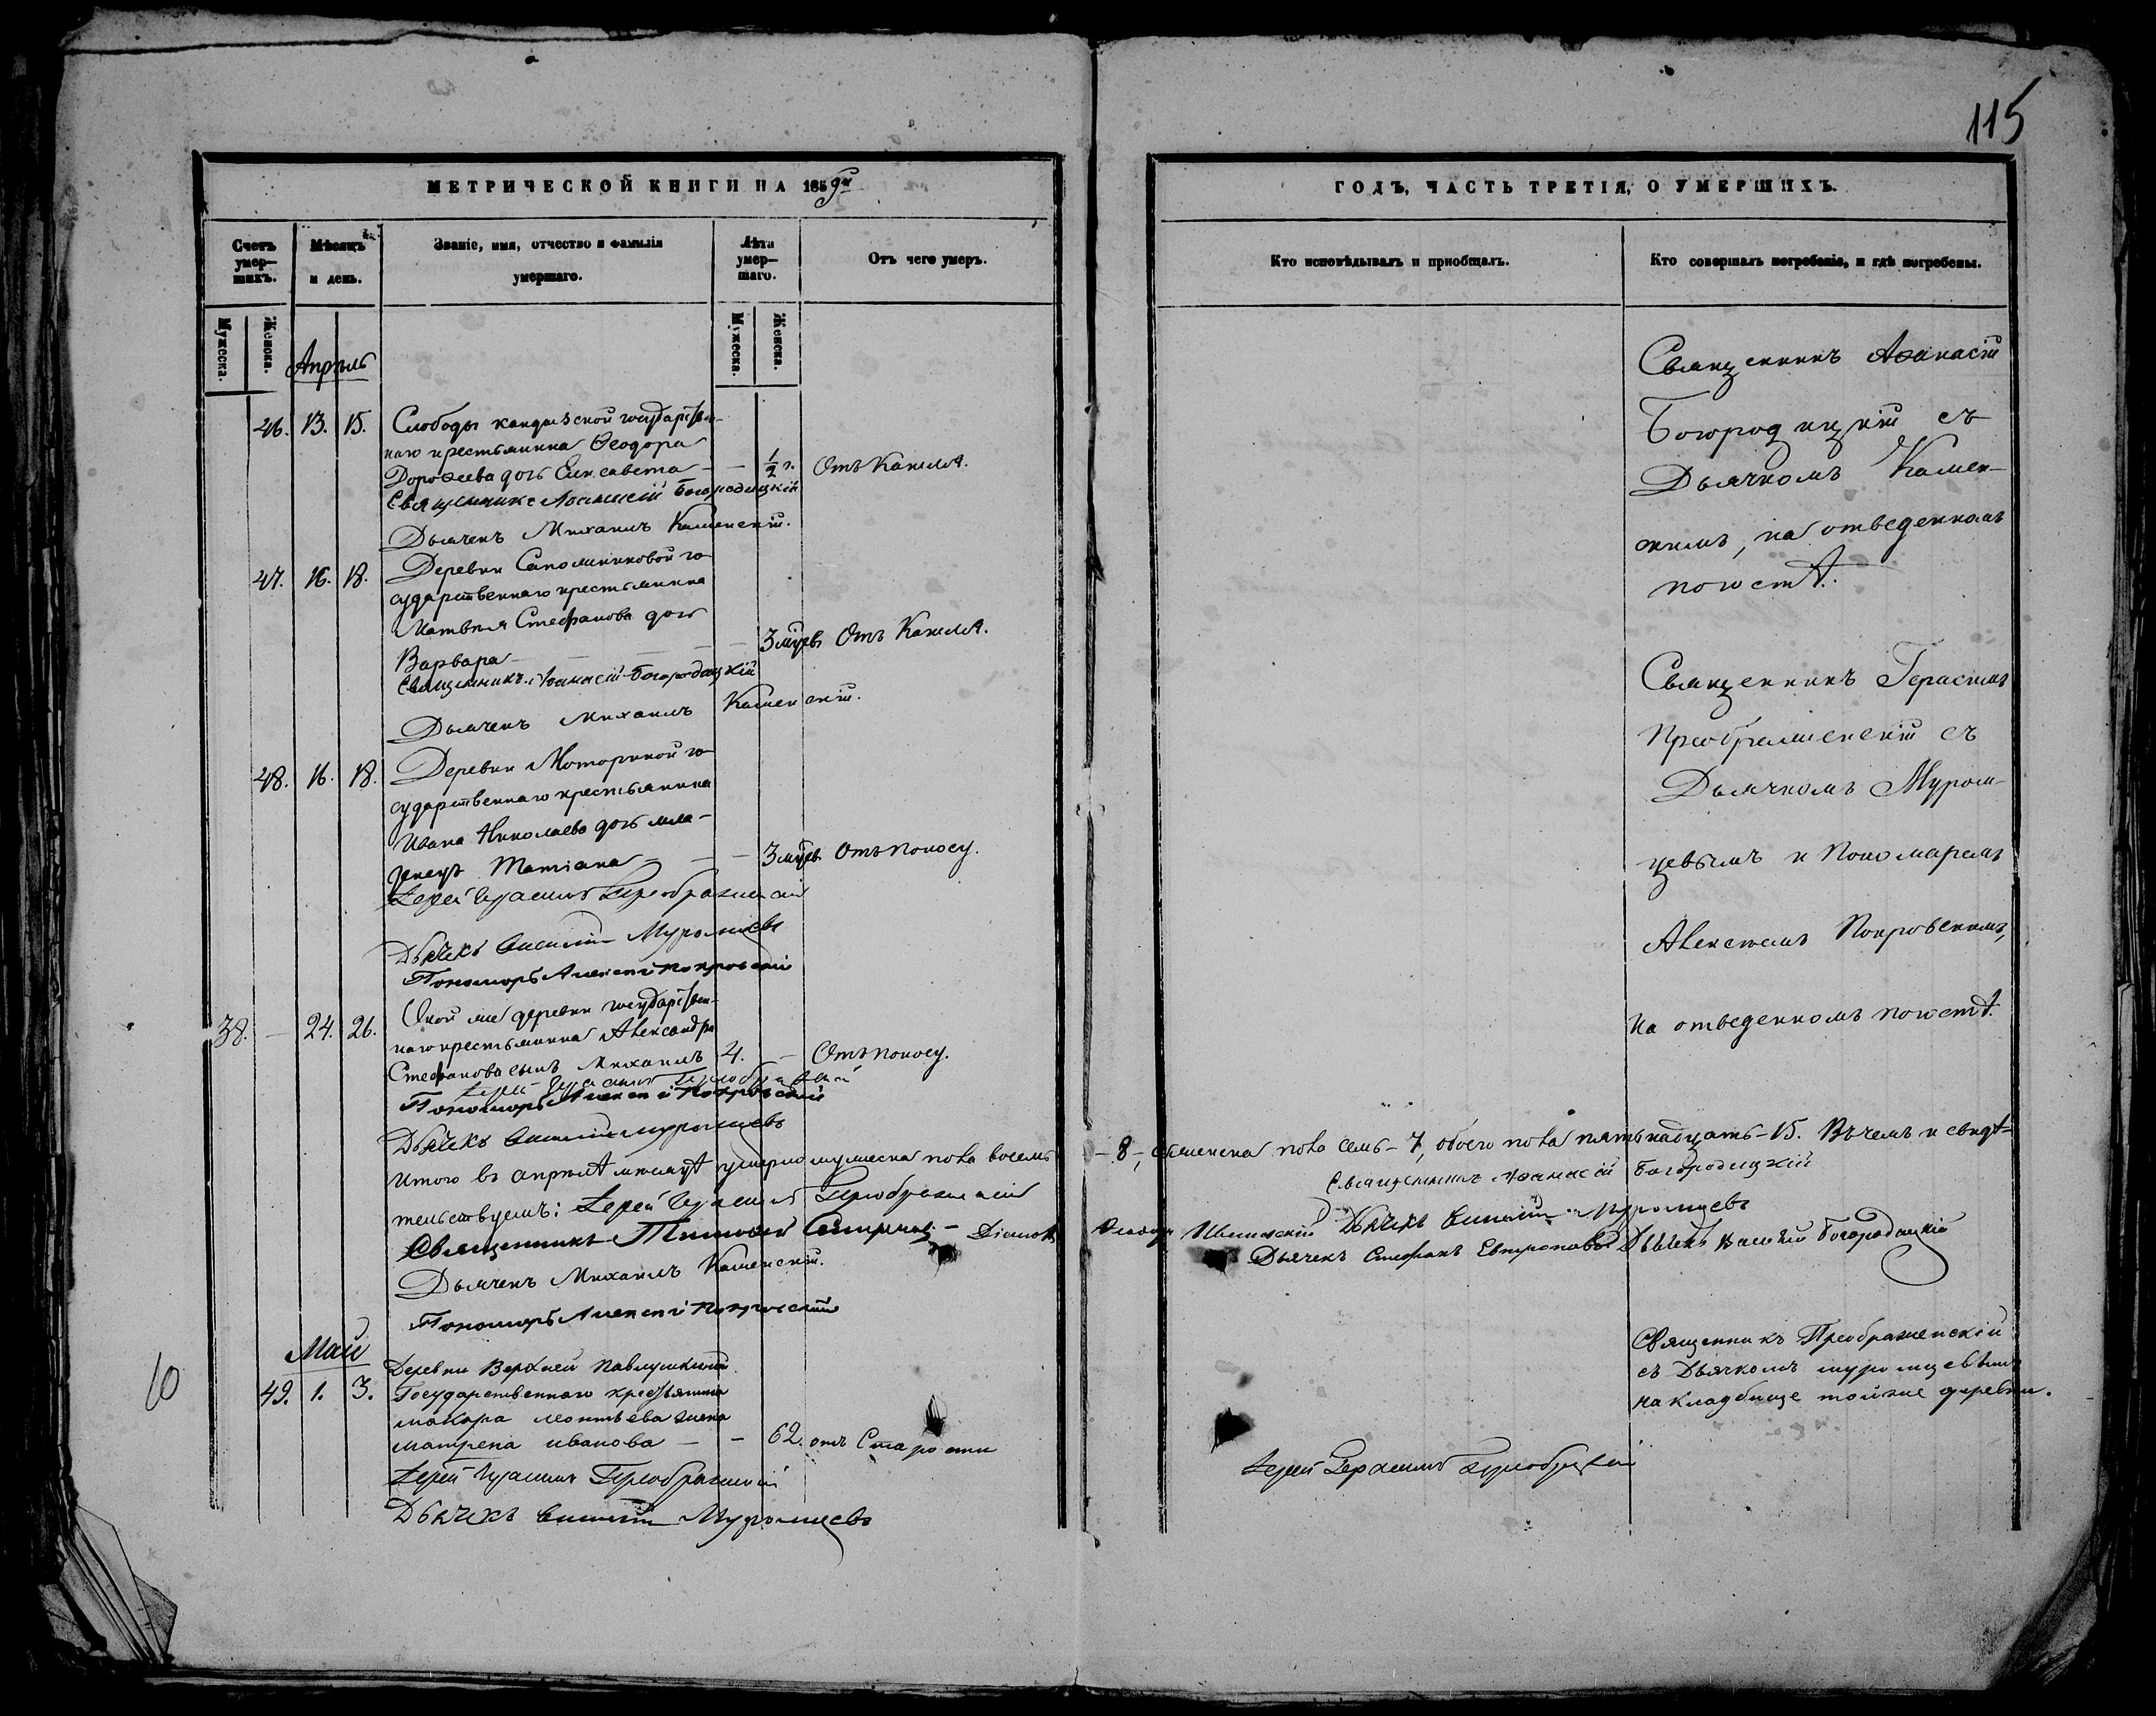 115
МЕТРИЧЕСКОЙ КНИГИ НА 1859й
ГОДЪ, ЧАСТЬ ТРЕТІЯ, О УМЕРШИХЪ.
Счетъ умер—шихъ.
Мѣсяцъ и день.
Званіе, имя, отчество и фамилія умершаго.
Лѣта умер—шаго.
Отъ чего умеръ.
Кто исповѣдывалъ и пріобщалъ.
Кто совершалъ погребеніе, и гдѣ погребены.
Мужеска.
Женска.
Мужеска.
Женска.
Апрѣль
46. 13. 15. Слободы государствен-
наго крестьянина Ѳеодора
Дороѳеева дочь Елисавета — — 1/2 г. Отъ Кашля.
Священникъ Аѳанасій Богородицкій
Дьячекъ Михаилъ Каменскій.
47. 16. 18. Деревни го-
сударственнаго крестьянина
Матвѣя Стефанова дочь
Варвара — — — — 3 мѣсв Отъ Кашля.
Священникъ Аѳанасій Богородицкій
Дьячекъ Михаилъ Каменскій.
48. 16. 18. Деревни Моториной го-
сударственнаго крестьянина
Ивана Николаева дочь мла-
денецъ Татіана — — — 3 мѣсв Отъ поносу.
Іерей Герасимъ Преображенскій
Дьячекъ Василій Муромцевъ
Пономарь Алексій Покровскій
38. — 24. 26. Оной же деревни государствен-
наго крестьянина Александра
Стефанова сынъ Михаилъ 4. — Отъ поносу.
Іерей Герасимъ Преображенскій
Пономарь Алексій Покровскій
Дьячекъ Василій Муромцевъ
Итого въ апрѣлѣ мѣсяцѣ умерло мужеска пола восемь
тельствуемъ: Іерей Герасимъ Преображенскій
Священникъ Тимоѳей Смирнов — Діаконъ
Дьячекъ Михаилъ Каменскій.
Пономарь Алексій Покровскій
Май
49. 1. 3. Деревни Верхней Павлушкиной
Государственнаго крестьянина
макара леонтьева жена
матрена иванова — — 62. отъ Старости
Іерей Герасимъ Преображенскій
Дьячекъ Василій Муромцевъ
10
Священникъ Аѳанасій
Богородицкій съ
Дьячкомъ Камен-
скимъ, на отведенномъ
погостѣ.
Священникъ Герасимъ
Преображенскій съ
Дьячкомъ Муром-
цевымъ и Пономаремъ
Алексѣемъ Покровскимъ,
на отведенномъ погостѣ.
— 8 —, женска пола семь — 7, обоего пола пятьнадцать — 15. Въ чемъ и свидѣ-
Священникъ Аѳанасій Богородицкій
Дьячекъ Василій Муромцевъ
Дьячекъ Стефанъ Евтроповъ Дьячекъ Богородицкій
Священникъ Преображенскій
съ Дьячкомъ муромцевымъ
на кладбище тойже деревни.
Іерей Герасимъ Преображенскій